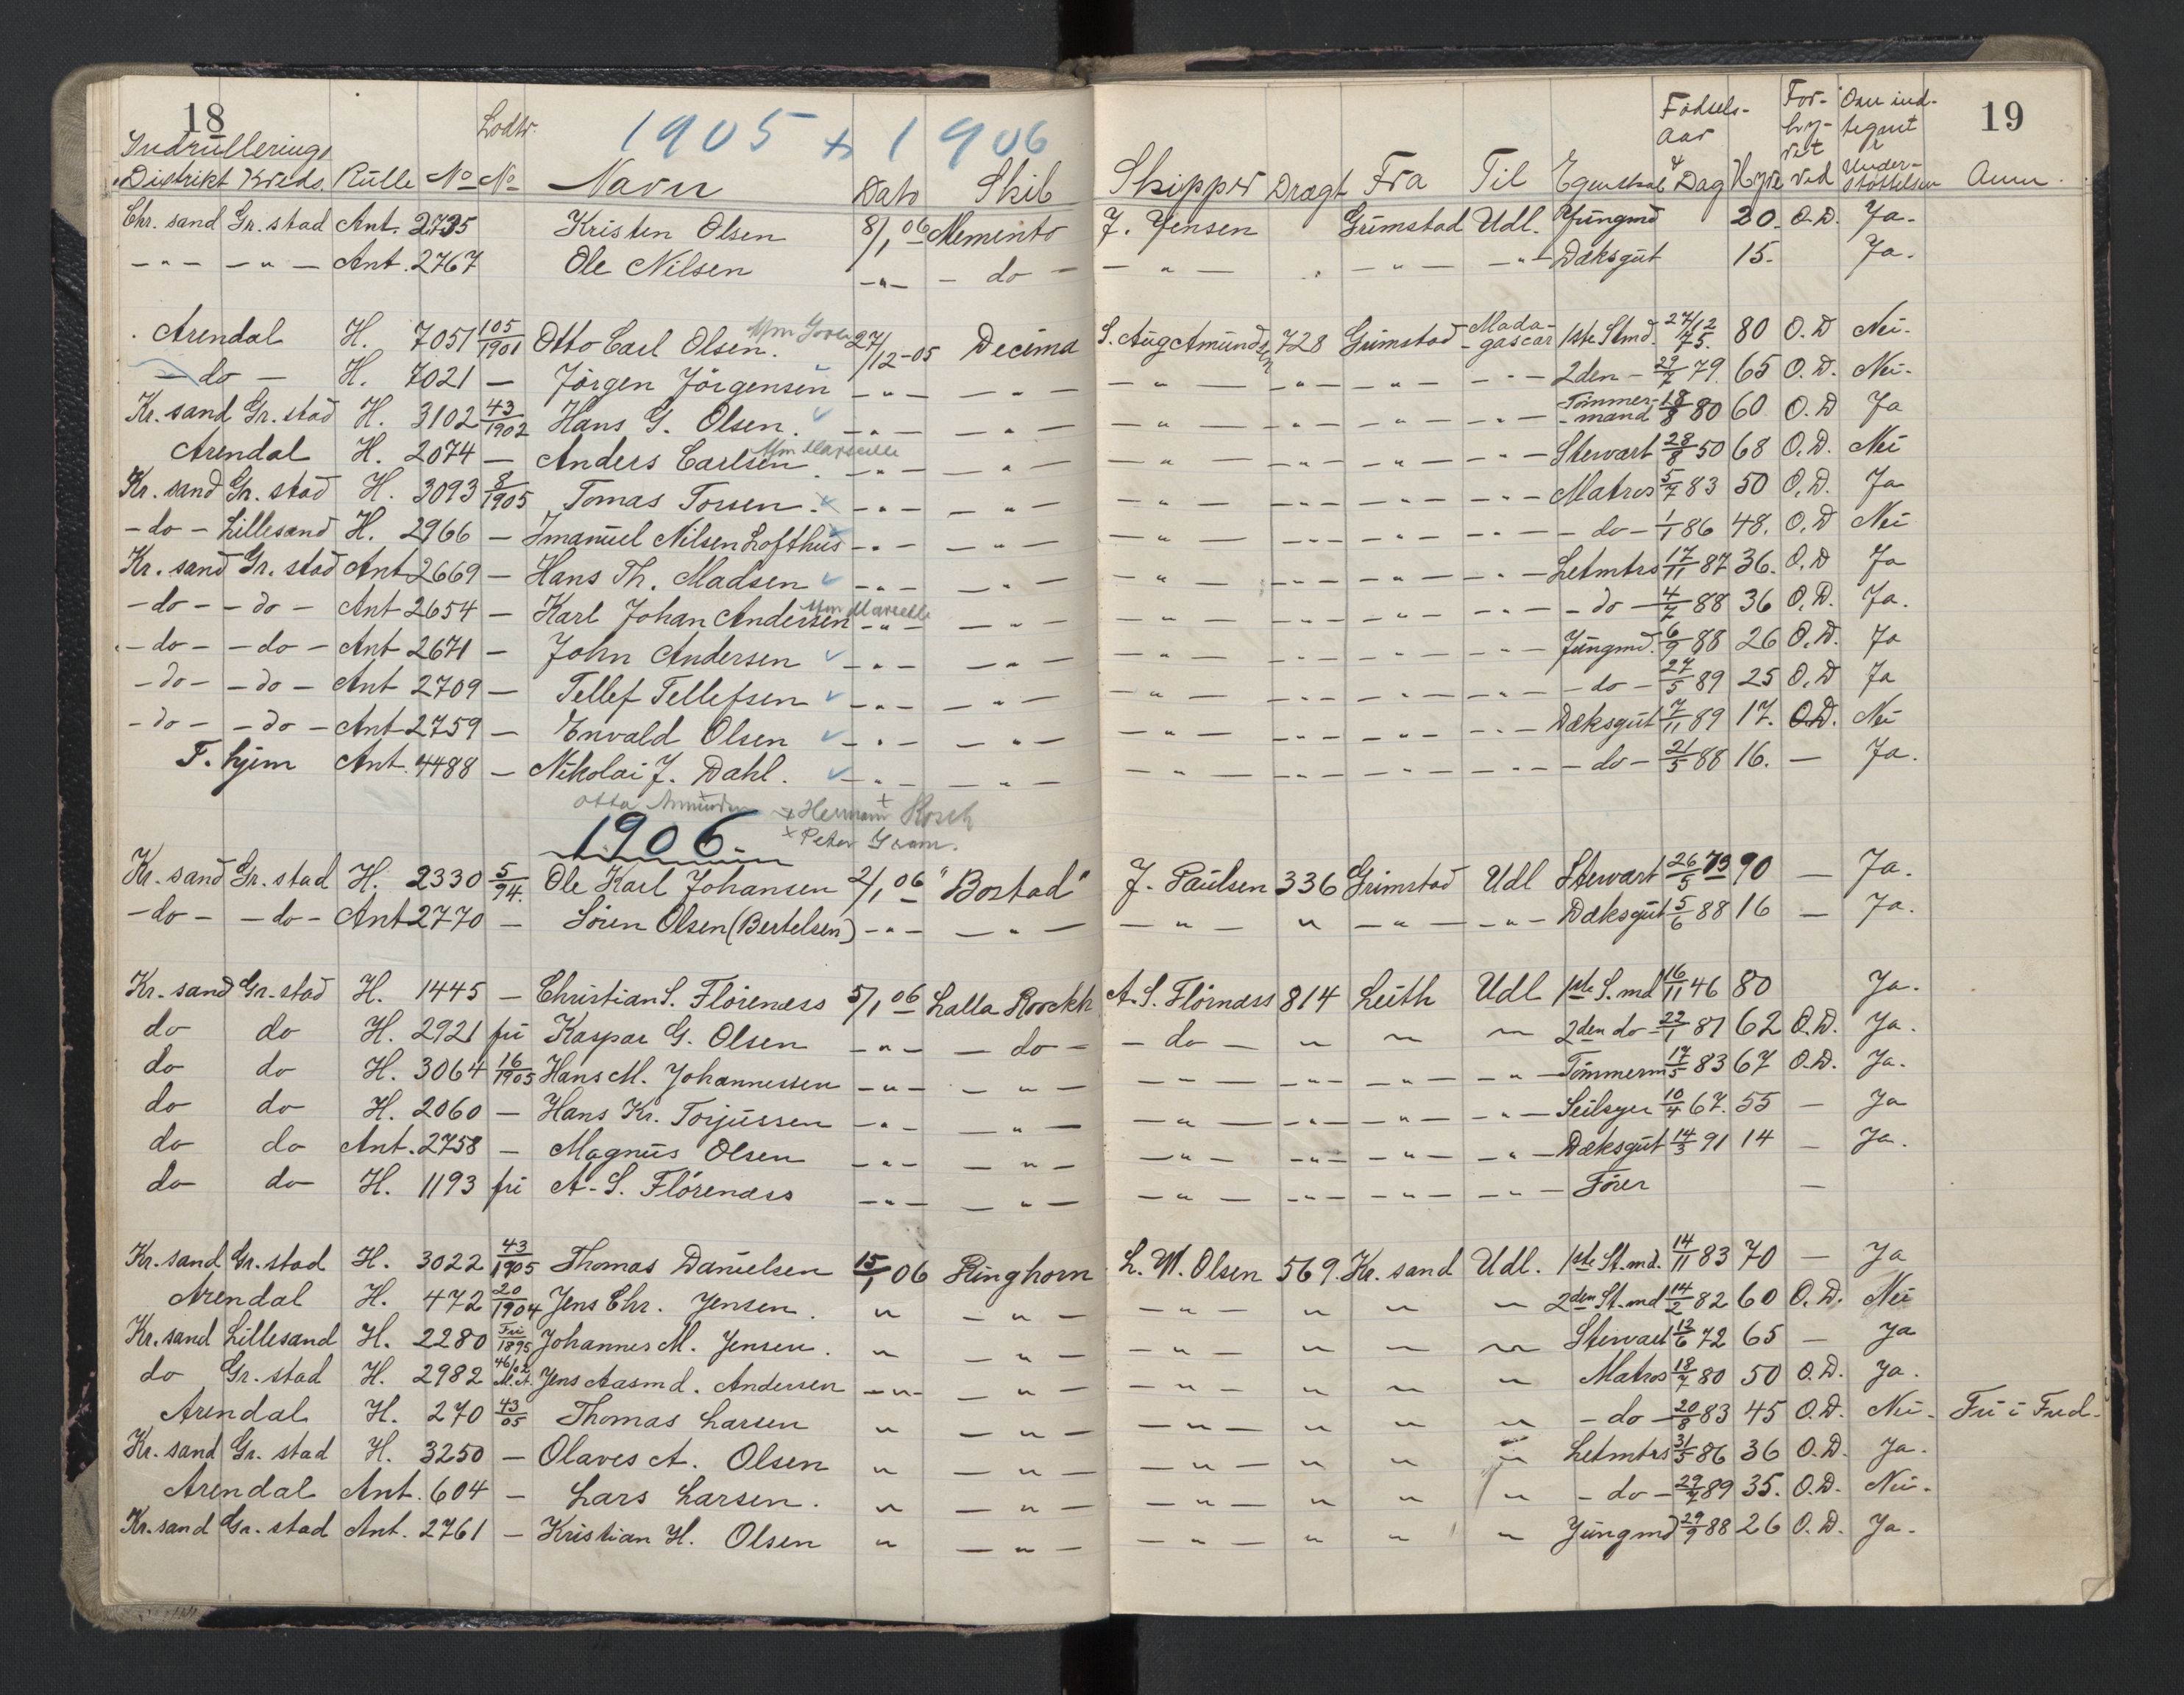 18
1905 & 1906
Indrullerings
Distrikt Kreds Rulle No Lodtr. No Navn Dato Skib
Chr. sand Gr. stad Ant. 2735 Kristen Olsen 8/1 06 Memento
-"- -"- Ant. 2767 Ole Nilsen -"- - do -
Arendal H. 7051 105/1901 Otto Carl Olsen. 27/12-05 Decima
- do - H. 7021 - Jörgen Jörgensen -"- -"-
Kr. sand Gr. stad H. 3102 43/1902 Hans G. Olsen. -"- -"-
Arendal H. 2074 - Anders Carlsen -"- -"-
Kr. sand Gr. stad H. 3093 8/1905 Tomas Torsen. -"- -"-
- do - Lillesand H. 2966 - Imanuel Nilsen Lofthus -"- -"-
Kr. sand Gr. stad Ant 2669 - Hans Th. Madsen -"- -"-
- do - - do - Ant 2654 - Karl Johan Andersen Mm Marseille -"- -"-
- do - - do - Ant 2671 - John Andersen -"- -"-
- do - - do - Ant 2709 - Tellef Tellefsen -"- -"-
- do - - do - Ant 2759 - Envald Olsen -"- -"-
T. hjem Ant. 4488 - Nikolai J. Dahl. -"- -"-
Otto Amundsen x Hermann Rosch
1906. x Peter Gram.
Kr. sand Gr. stad H. 2330 5/94. Ole Karl Johansen 2/1 06 "Bostad"
- do - - do - Ant 2770 - Sören Olsen (Bertelsen) -"- -"-
Kr. sand Gr. stad H. 1445 - Christian S. Flörenæss 5/1 06 Lalla Rookh
do do H. 2921 fri Kaspar G. Olsen -"- - do -
do do H. 3064 16/1905 Hans M. Johannessen -"- -"-
do do H. 2060 - Hans Kr. Torjussen -"- -"-
do do Ant. 2758 - Magnus Olsen -"- -"-
do do H. 1193 fri A. S. Flörenæss -"- -"-
Kr. sand Gr. stad H. 3022 43/1905 Thomas Danielsen 15/1 06 Ringhorn
Arendal H. 472 20/1904 Jens Chr. Jensen. " -"-
Kr. sand Lillesand H. 2280 Fri/1895 Johannes M. Jensen. " -"-
do Gr. stad H. 2982 46/02 Jens Aasmd. Andersen -"- -"-
Arendal H. 270 43/05 Thomas Larsen " -"-
Kr. sand Gr. stad H. 3250 - Olaves A. Olsen " -"-
Arendal Ant. 604 - Lars Larsen. " -"-
Kr. sand Gr. stad Ant. 2761 - Kristian H. Olsen " -"-
19
Skipper Drægt Fra Til Egenskab Födsels-aar & Dag Hyre For-hyret ved Om ind-tegnet i Under-støttelsen Anm.
J. Jensen Grimstad Udl. Jungmd 20. O.D. Ja.
-"- " -"- -"- Dæksgut 15. Ja.
S. Aug Amundsen 728 Grimstad Mada-gascar 1ste Stmd. 27/12 75. 80 O.D Nei.
-"- -"- -"- -"- 2den - 29/7 79. 65 O.D. Nei.
-"- -"- -"- -"- Tömmer-mand 18/8 80 60 O.D Ja
-"- -"- -"- -"- Stewart 28/8 50 68 O.D. Nei
-"- -"- -"- -"- Matros 5/7 83 50 O.D. Ja
-"- -"- -"- -"- - do - 1/1 86 48. O.D Nei
-"- -"- -"- -"- Letmtrs 17/11 87 36. O.D Ja
-"- -"- -"- -"- - do - 4/7 88 36 O.D. Ja.
-"- -"- -"- -"- Jungmd. 6/9 88 26 O.D. Ja
-"- -"- -"- -"- - do - 27/5 89 25 O.D Ja
-"- -"- -"- -"- Dæksgut 7/11 89 17. O.D. Nei
-"- -"- -"- -"- - do - 21/5 88 16. - Ja.
J. Paulsen 336 Grimstad Udl Stewart 26/5 73 90 - Ja.
-"- " -"- -"- Dæksgut 5/6 88 16 - Ja.
A. S. Flörnæss 814 Leith Udl 1ste S. md 16/11 46 80 Ja.
- do - " " " 2den do - 22/1 81 62 O.D. Ja.
-"- -"- -"- -"- Tömmerm 17/5 83 67 O.D. Ja.
-"- -"- -"- -"- Seilsyer 10/4 67. 55 - Ja
-"- -"- -"- -"- Dæksgut 14/3 91 14 - Ja.
-"- -"- -"- -"- Förer -
L. W. Olsen 569. Kr. sand Udl. 1ste St. md. 14/11 83 70 - Ja
-"- " " " 2den St. md 14/2 82 60 O.D. Nei
-"- " " " Stewart 12/6 72 65 - Ja
-"- " " " Matros 18/7 80 50 O.D. Ja.
-"- " " " - do - 20/8 83 45 O.D. Nei. Fri i Fred.
-"- " " " Letmtrs 31/5 86 36 O.D. Ja.
-"- " " " - do - 29/7 89 35. O.D. Nei.
-"- " " " Jungmd 29/9 88 26 O.D. Ja.